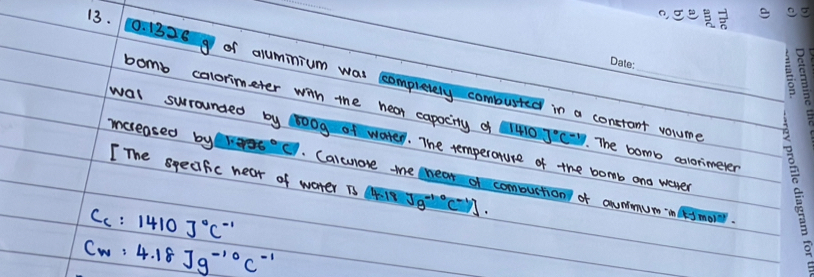 Date:
13. 0.1326 g of aluminium was completely combusted in a constant volume
bomb calorimeter with the heat capacity of 1410 J°C⁻¹. The bomb calorimeter
was surrounded by 800g of water. The temperature of the bomb and water
increased by °C. Calculate the heat of combustion of aluminium in kJmol⁻¹.
[The specific heat of water is 4.18 Jg⁻¹°C⁻¹].
Cc : 1410 J°C⁻¹
Cw : 4.18 Jg⁻¹°C⁻¹
The
and
a)
b)
c)
d)
b)
c) Determine the
profile diagram for